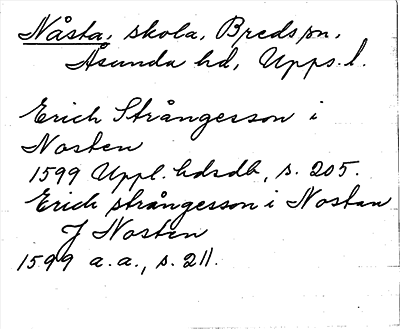 Nåsta, skola, Breds sn,
Åsunda hd, Upps. l.
Erich Strångesson i
Nosten
1599 Uppl. hdrdb, s. 205.
Erich strångesson i Nostan
J Nosten
1599 a.a., s. 211.